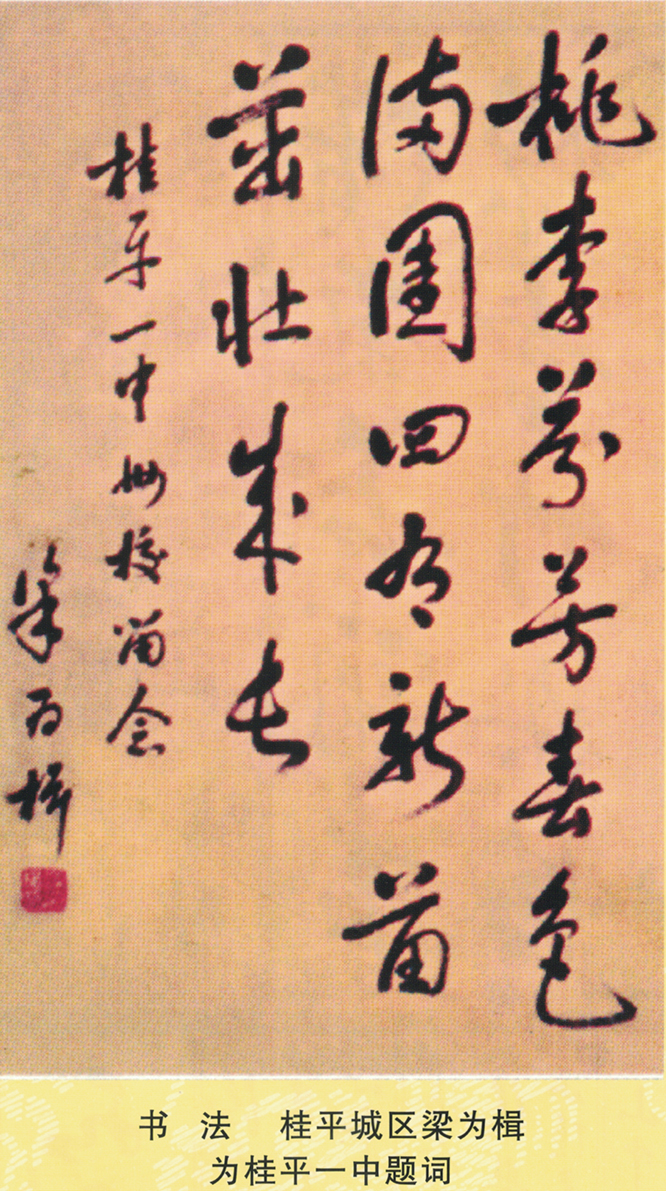 桃李芬芳春色
满園四有新苗
茁壮成长
桂平一中母校留念
梁为楫
书 法 桂平城区梁为楫
为桂平一中题词